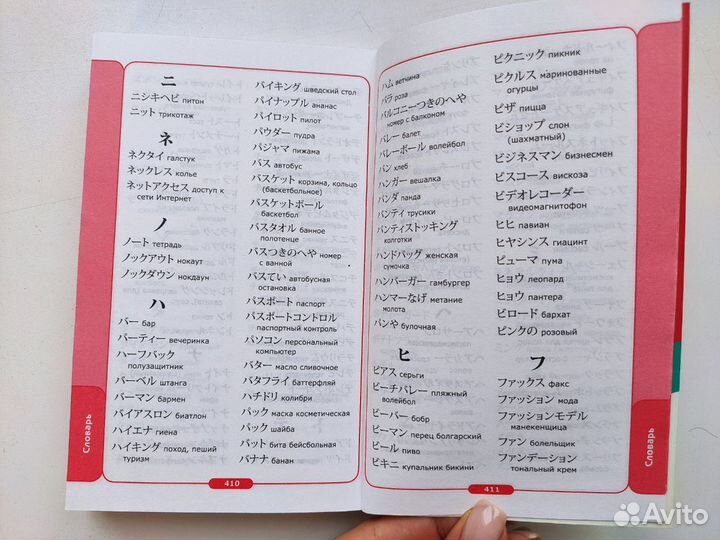 ニ
ニシキヘビ питон
ニット трикотаж
ネ
ネクタイ галстук
ネックレス колье
ネットアクセス доступ к
сети Интернет
ノ
ノート тетрадь
ノックアウト нокаут
ノックダウン нокдаун
ハ
バー бар
パーティー вечеринка
ハーフバック
полузащитник
バーベル штанга
バーマン бармен
バイアスロン биатлон
ハイエナ гиена
ハイキング поход, пеший
туризм
バイキング шведский стол
パイナップル ананас
パイロット пилот
パウダー пудра
パジャマ пижама
バス автобус
バスケット корзина, кольцо
(баскетбольное)
バスケットボール
баскетбол
バスタオル банное
полотенце
バスつきのへや номер
с ванной
バスてい автобусная
остановка
パスポート паспорт
パスポートコントロル
паспортный контроль
パソコン персональный
компьютер
バター масло сливочное
バタフライ баттерфляй
ハチドリ колибри
パック маска косметическая
パック шайба
バット бита бейсбольная
バナナ банан
410
Словарь
ハム ветчина
バラ роза
バルコニーつきのへや
номер с балконом
バレー балет
バレーボール волейбол
パン хлеб
ハンガー вешалка
パンダ панда
パンティ трусики
パンティストッキング
колготки
ハンドバッグ женская
сумочка
ハンバーガー гамбургер
ハンマーなげ метание
молота
パンや булочная
ヒ
ピアス серьги
ビーチバレー пляжный
волейбол
ビーバー бобр
ピーマン перец болгарский
ビール пиво
ビキニ купальник бикини
ピクニック пикник
ピクルス маринованные
огурцы
ピザ пицца
ビショップ слон
(шахматный)
ビジネスマン бизнесмен
ビスコース вискоза
ビデオレコーダー
видеомагнитофон
ヒヒ павиан
ヒヤシンス гиацинт
ピューマ пума
ヒョウ леопард
ヒョウ пантера
ビロード бархат
ピンクの розовый
フ
ファックス факс
ファッション мода
ファッションモデル
манекенщица
ファン болельщик
ファンデーション
тональный крем
411
Словарь
Avito